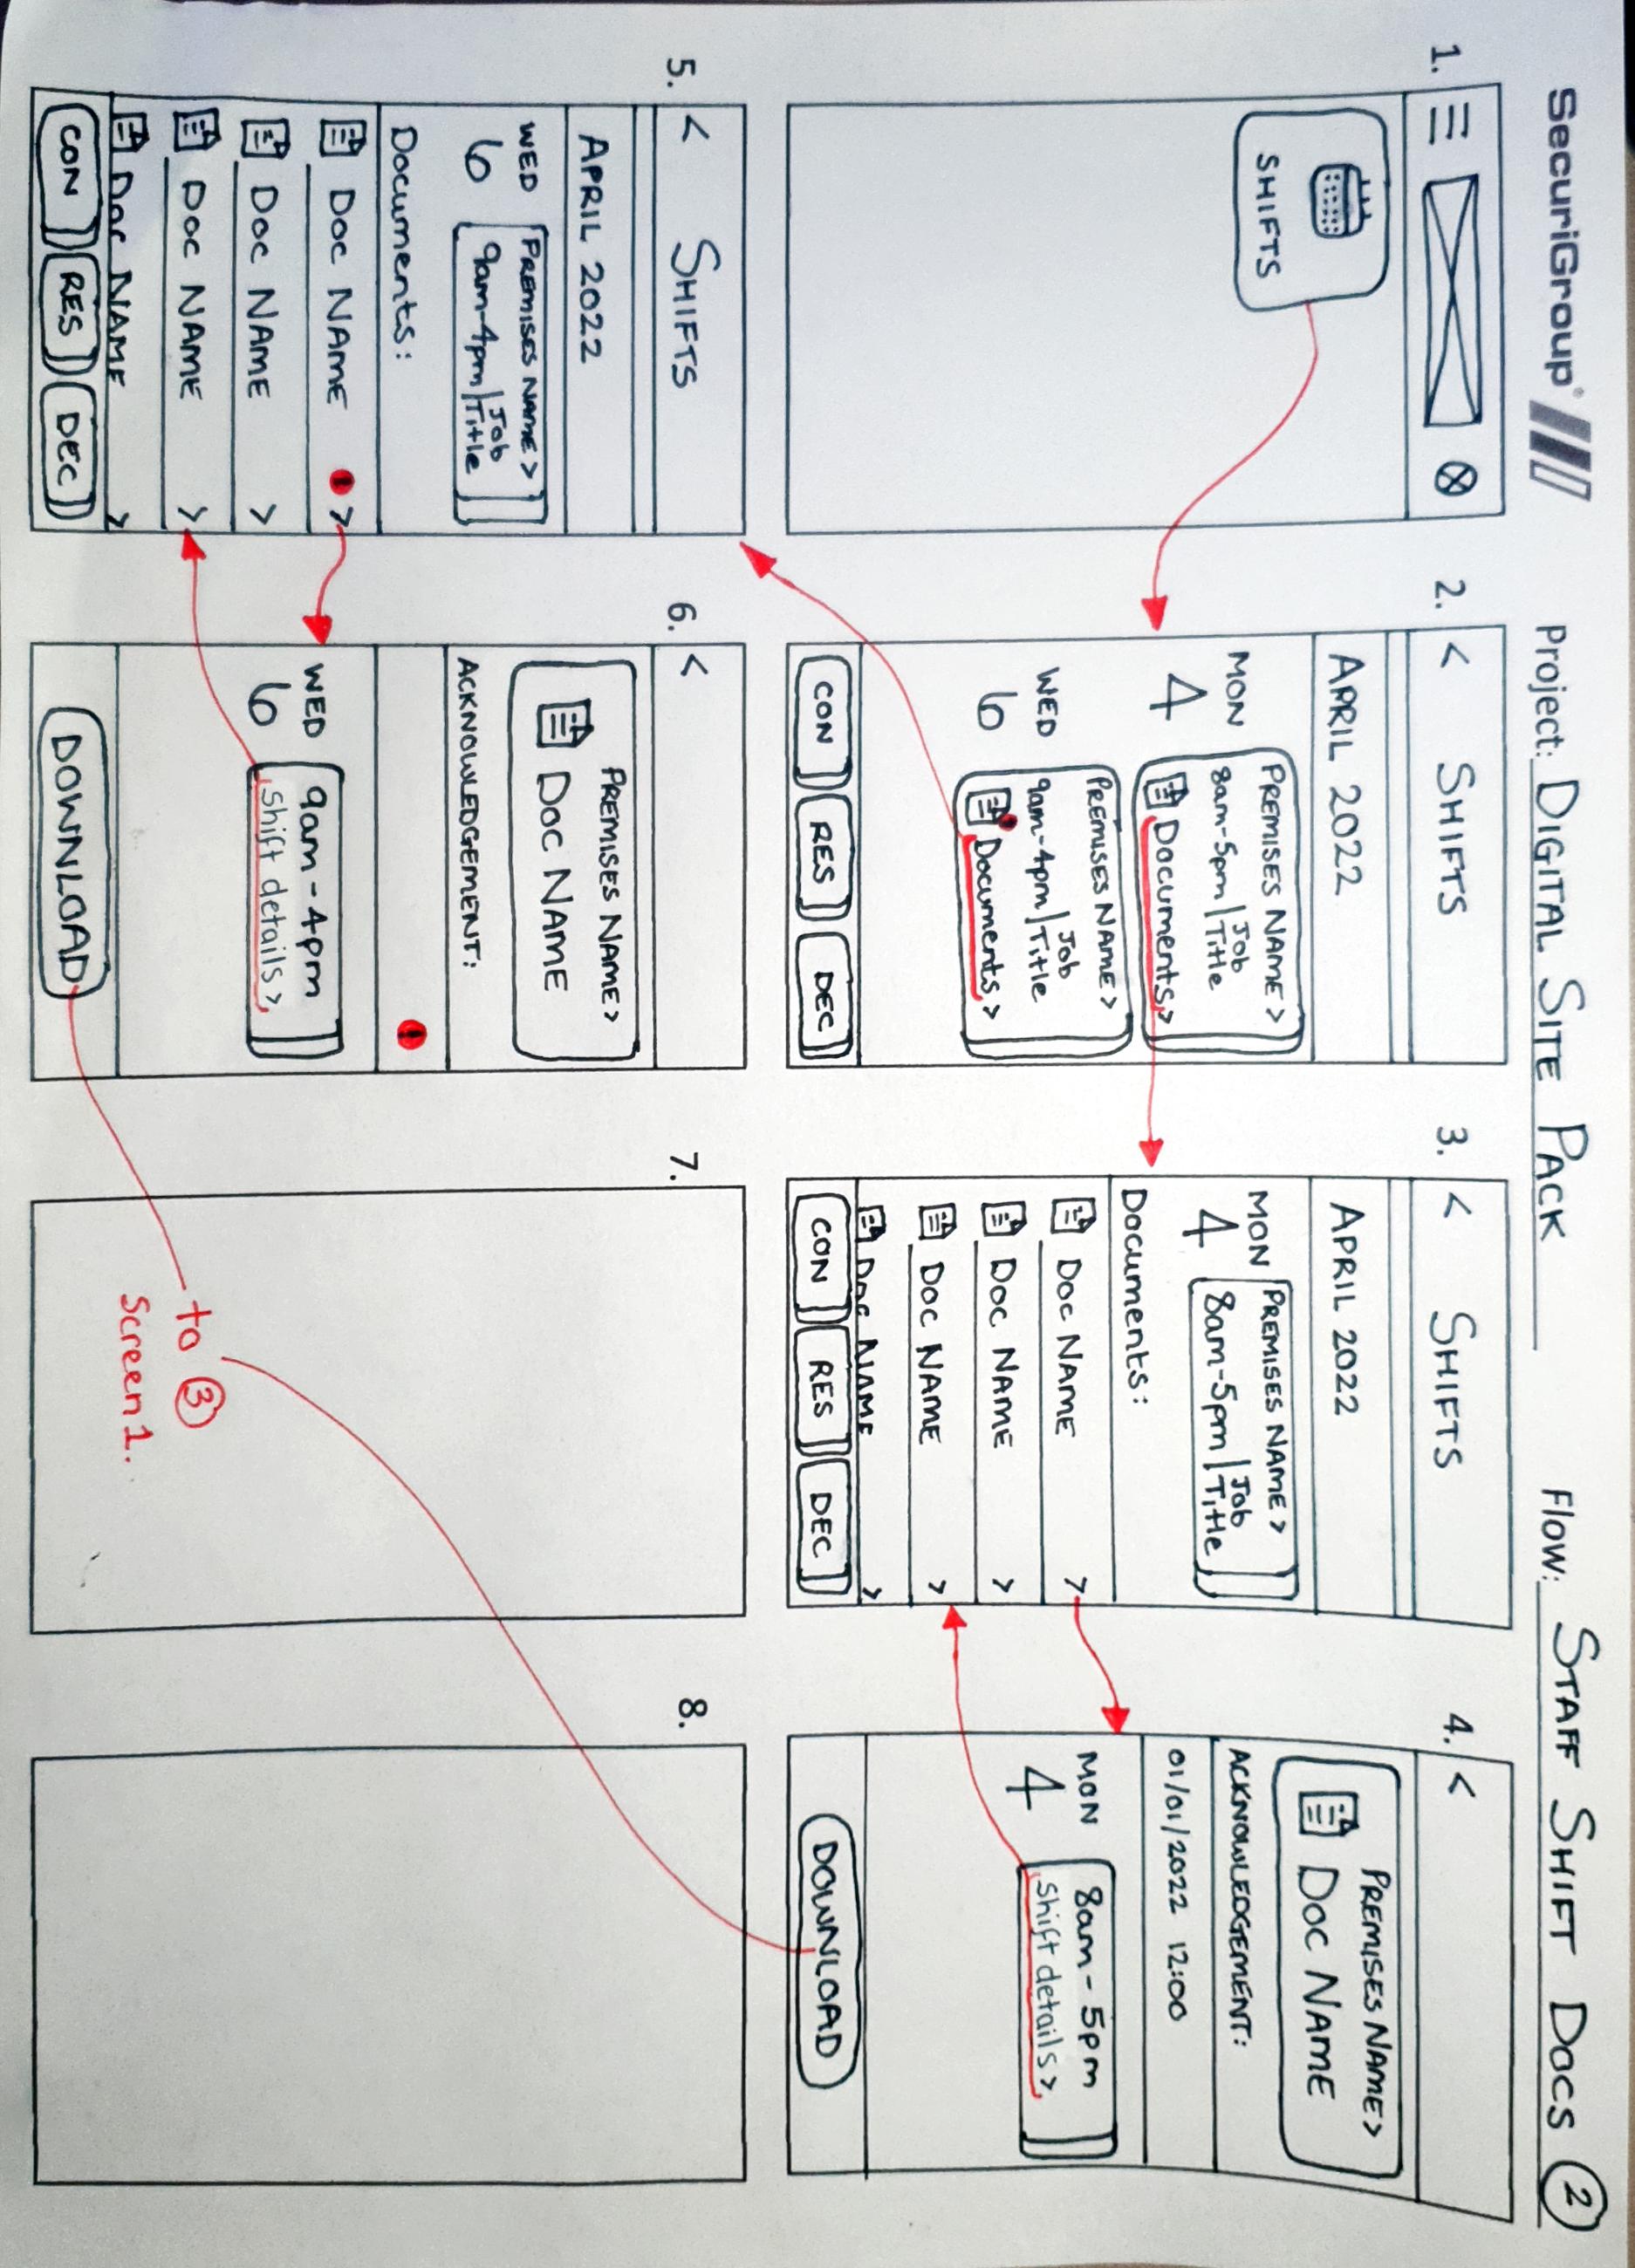 SecuriGroup
Project: DIGITAL SITE PACK
Flow: STAFF SHIFT DOCS 2
1.
SHIFTS
2.
< SHIFTS
APRIL 2022
MON
4
PREMISES NAME >
8am-5pm | Job Title
Documents >
WED
6
PREMISES NAME >
9am-4pm | Job Title
Documents >
CON RES DEC
3.
< SHIFTS
APRIL 2022
MON
4
PREMISES NAME >
8am-5pm | Job Title
Documents:
DOC NAME >
DOC NAME >
DOC NAME >
DOC NAME >
CON RES DEC
4.
<
PREMISES NAME >
DOC NAME
ACKNOWLEDGEMENT:
01/01/2022 12:00
MON
4
8am - 5pm
Shift details >
DOWNLOAD
5.
< SHIFTS
APRIL 2022
WED
6
PREMISES NAME >
9am-4pm | Job Title
Documents:
DOC NAME ! >
DOC NAME >
DOC NAME >
DOC NAME >
CON RES DEC
6.
<
PREMISES NAME >
DOC NAME
ACKNOWLEDGEMENT:
!
WED
6
9am - 4pm
Shift details >
DOWNLOAD
7.
to 3
Screen 1.
8.